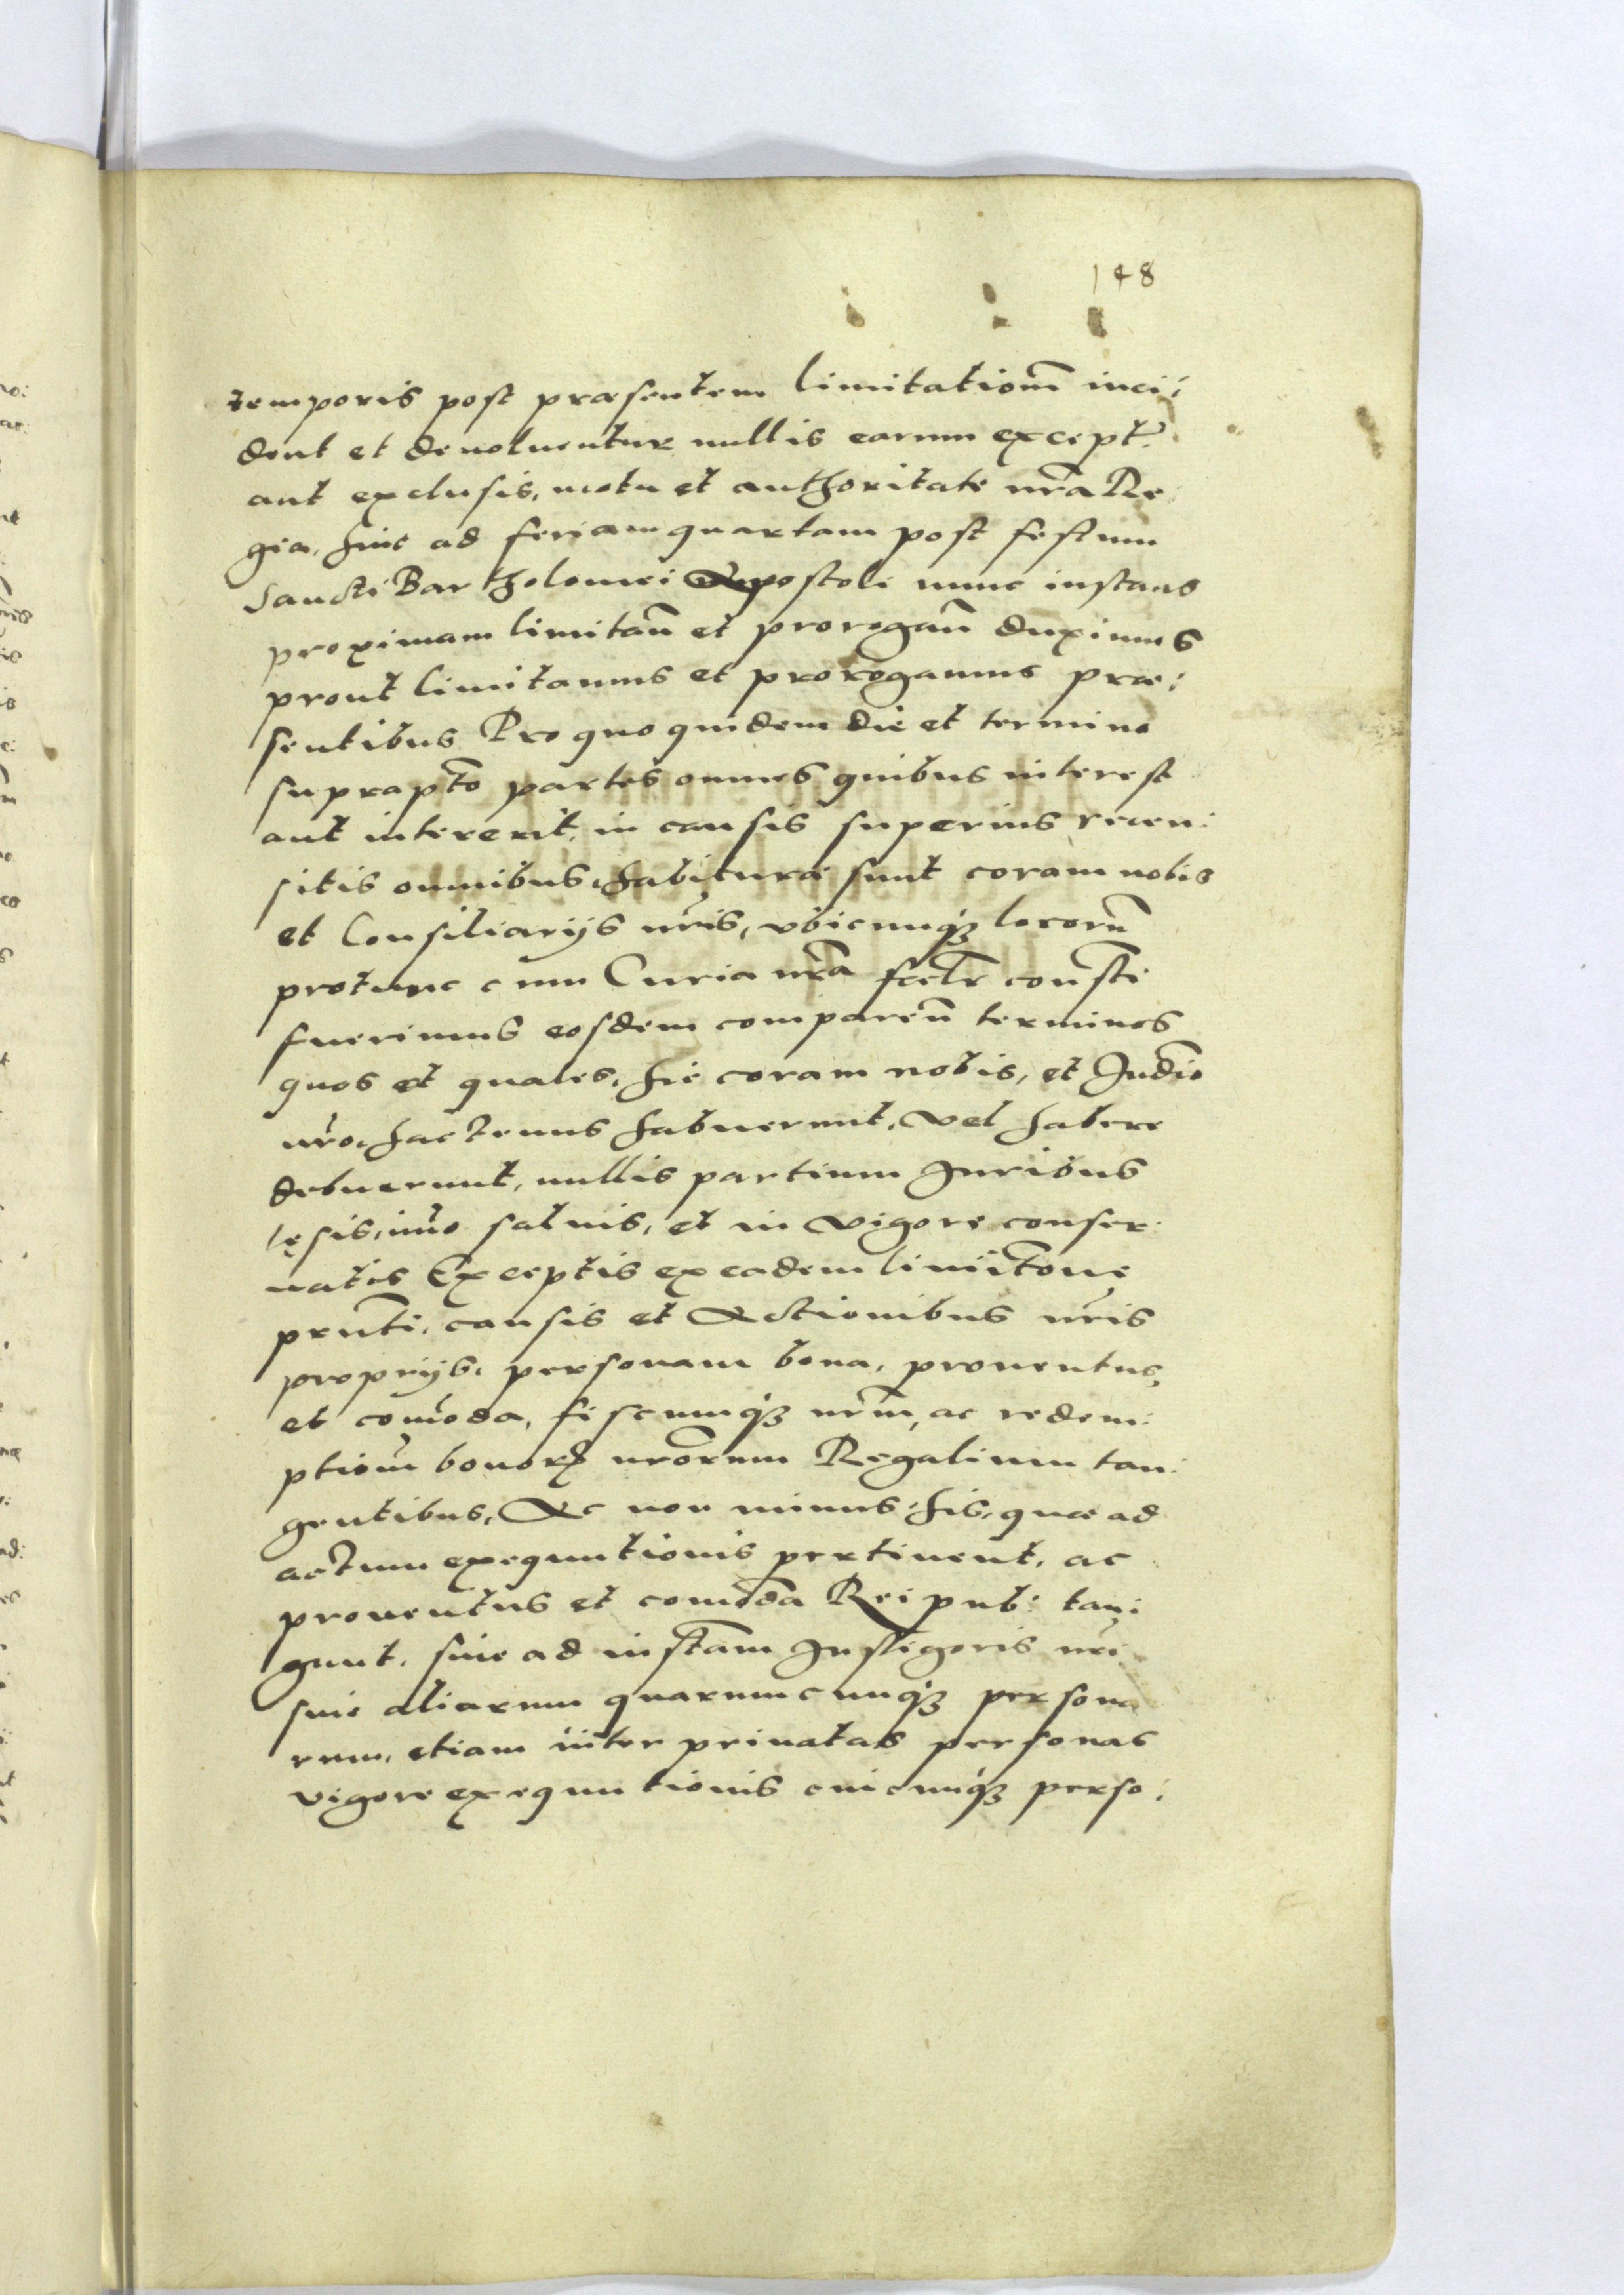 148
temporis post praesentem limitationẽ inci:
dent et deuoluentur nullis earum except̃
aut exclusis, motu et authoritate nr̃a Re
gia, hinc ad feriam quartam post festum
Sancti Bartholomei Apostoli nunc instans
proximam limitañ et prorogañ duximus
prout limitamus et prorogamus prae:
sentibus Pro quo quidem die et termino
suprapto partes omnes quibus interest
aut intererit, in causis superius recen:
sitis omnibus, habiturae sunt coram nobis
et Consiliarijs nr̃is, vbicunqȝ locorũ
protunc cum Curia nr̃a fœlr̃ consti
fuerimus eosdem compareñ terminos
quos et quales, hic coram nobis, et Iudio
nr̃o, hactenus habuerunt, vel habere
debuerunt, nullis partium Iuribus
lęsis, im̃o saluis, et in vigore conser:
uatis Exceptis ex eadem limitc̃one
prñti, causis et Actionibus nr̃is
proprijs, personam bona, prouentus,
et com̃oda, fiscumqȝ nr̃m, ac redem:
ptionẽ bonorꝝ nr̃orum Regalium tan:
gentibus, Ac non minus his, quae ad
actum exequutionis pertinent, ac
prouentus et com̃oda Rei pub: tan:
gunt, siue ad instam̃ Instigoris nr̃i
siue aliarum quarumcunqȝ persona
rum, etiam inter priuatas personas
vigore exequutionis cuicunqȝ perso: